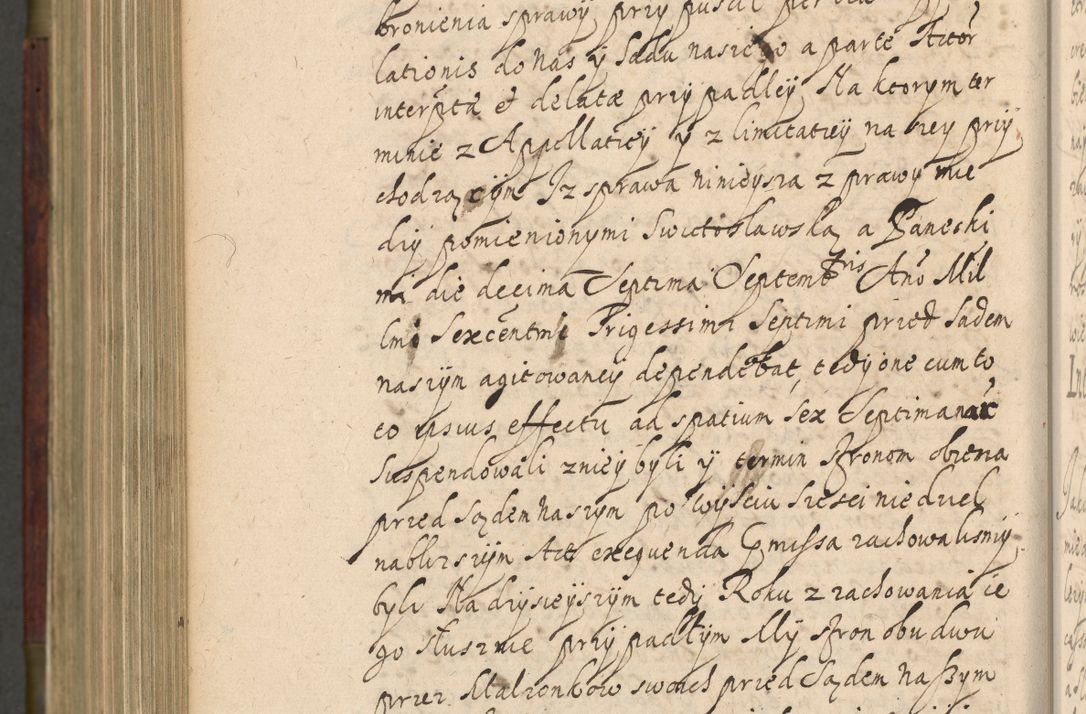 bronienia sprawÿ przÿ puscic
lationis do Nas ÿ Sadu nasie o a parte Actor
interpta et delatæ przÿpadłeÿ Na ktorÿm ter
minie z Appellatieÿ ÿ z limitatieÿ na nieÿ przÿ
chodząciÿm Jz sprawa ninieÿsza z prawÿ mie
dzÿ pomienionÿmi Swiętosławską a Baneski
mi die decima Septima Septembris Año Mil
lmo Sexcentmo Trigessimi Septimi przed Sądem
naszÿm agitowaneÿ dependebat, tedÿ one cum to
to ipsius effectu ad spatium Sex Septimanar
Suspendowali znieÿ bÿli ÿ termin stronom obiema
przed Sądem Naszÿm po wÿsciu szesci niedziel
nablizszÿm Act exequenda Comissa zachowalismÿ
bÿli Na dzisieÿszÿm tedÿ Roku z zachowania ie
go słusznie przÿpadłÿm Mÿ stron obudwu
przez Małzonkow swoich przed Sądem Naszym